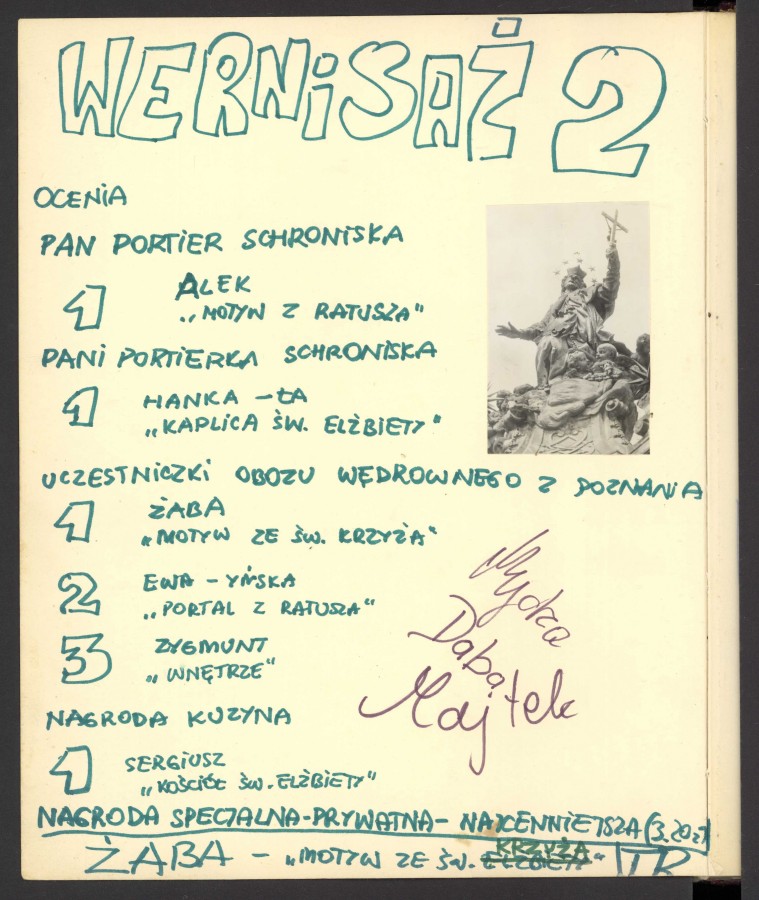 WERNISAŻ 2
OCENIA
PAN PORTIER SCHRONISKA
1 ALEK
„MOTYW Z RATUSZA"
PANI PORTIERKA SCHRONISKA
1 HANKA - ŁA
„KAPLICA ŚW. ELŻBIETY"
UCZESTNICZKI OBOZU WĘDROWNEGO Z POZNANIA
1 ŻABA
„MOTYW ZE ŚW. KRZYŻA"
2 EWA - YŃSKA
„PORTAL Z RATUSZA"
3 ZYGMUNT
„WNĘTRZE"
Daba
Majtek
NAGRODA KUZYNA
1 SERGIUSZ
„KOŚCIÓŁ ŚW. ELŻBIETY"
NAGRODA SPECJALNA-PRYWATNA- NAJCENNIEJSZA (3.20 zł)
KRZYŻA
ŻABA - „MOTYW ZE ŚW. ELŻBIETY"